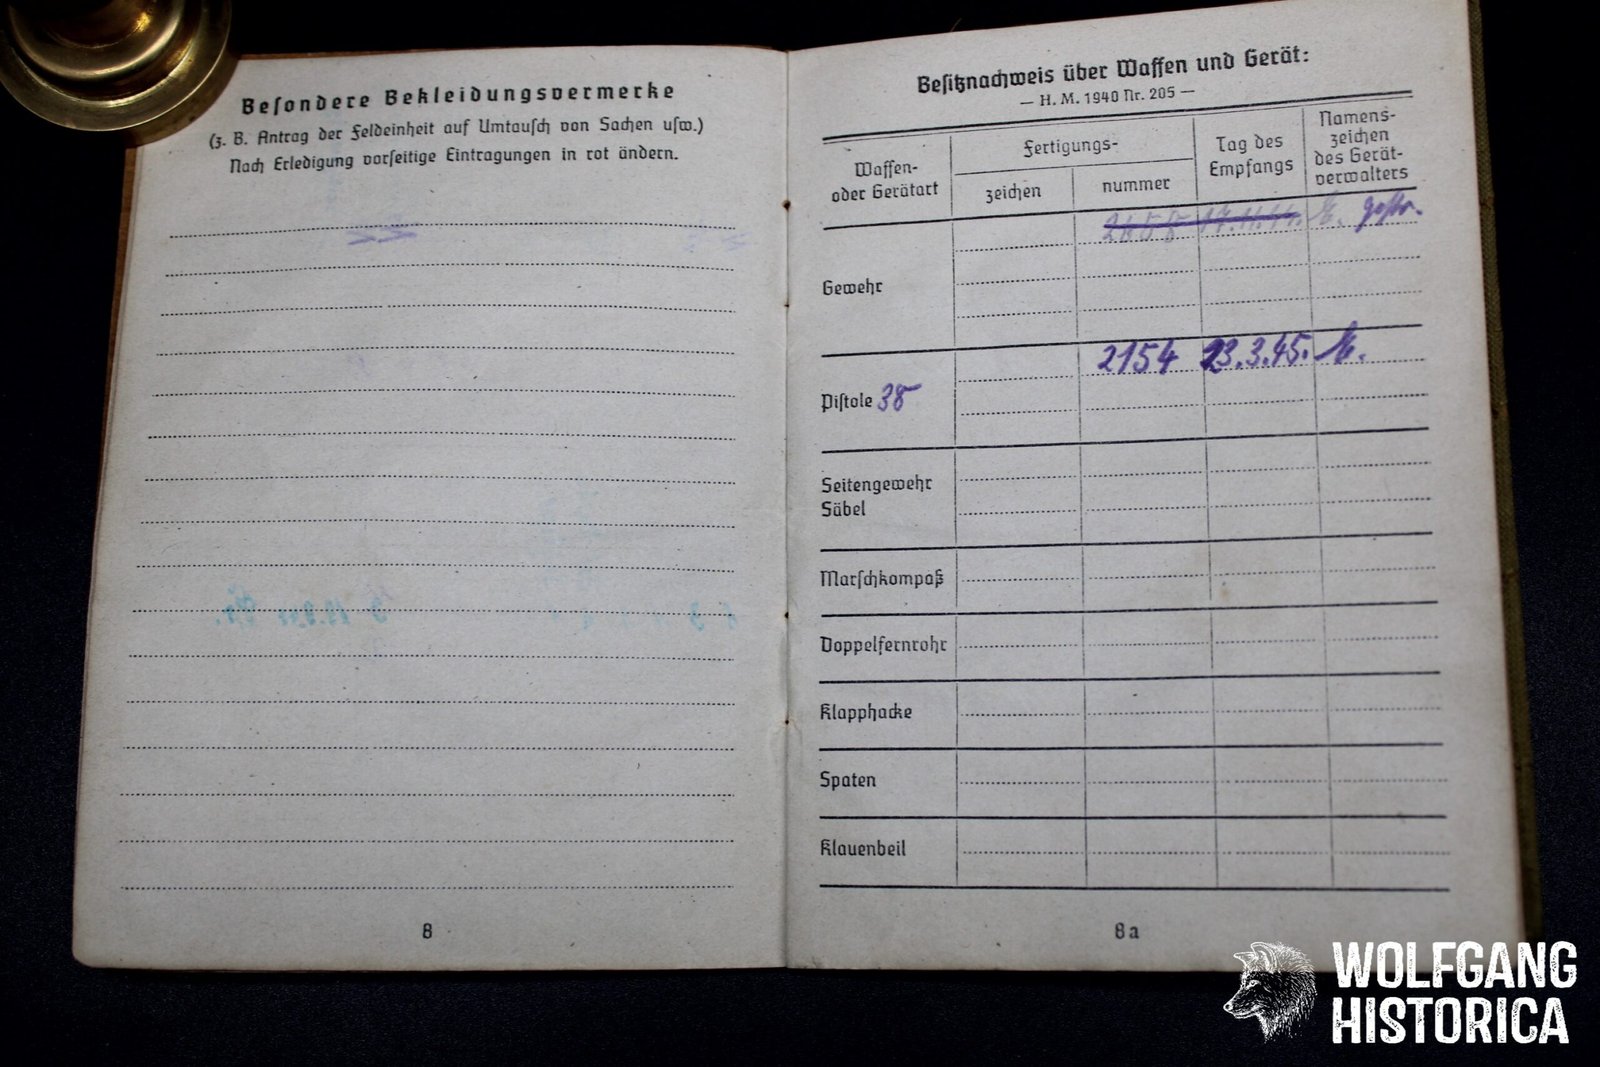 Besondere Bekleidungsvermerke
(z. B. Antrag der Feldeinheit auf Umtausch von Sachen usw.)
Nach Erledigung vorseitige Eintragungen in rot ändern.
8
Besitznachweis über Waffen und Gerät:
— H. M. 1940 Nr. 205 —
Waffen- oder Gerätart
Fertigungs-
zeichen
nummer
Tag des Empfangs
Namens-zeichen des Gerät-verwalters
17.11.44. gestr.
Gewehr
2154 23.3.45.
Pistole 38
Seitengewehr
Säbel
Marschkompaß
Doppelfernrohr
Klapphacke
Spaten
Klauenbeil
8a
WOLFGANG
HISTORICA